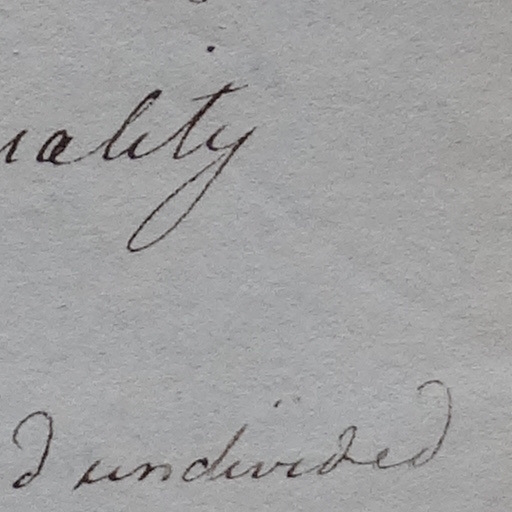 uality
d undivided